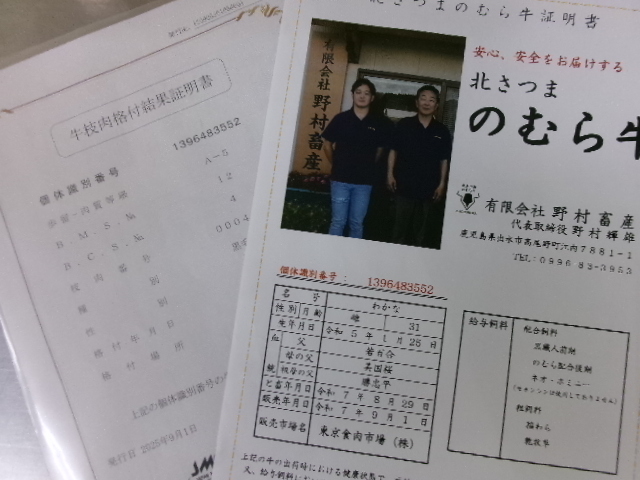 牛枝肉格付結果証明書
個体識別番号 1396483552
歩留・肉質等級 A-5
B.M.S.№ 12
B.C.S.№ 4
枝肉番号 0004
種別
性別
格付年月日
格付場所
上記の個体識別番号の
発行日 2025年9月1日
北さつまのむら牛証明書
安心、安全をお届けする
北さつま
のむら牛
有限会社 野村畜産
有限会社 野村畜産
代表取締役 野村輝雄
鹿児島県出水市高尾野町江内7881-1
TEL:0996-82-3953
個体識別番号: 1396483552
名号 わかな
性別 月齢 雌 31
生年月日 令和 5 年 1 月 25 日
血統 父 若百合
母の父 美国桜
祖母の父 勝忠平
と畜年月日 令和 7 年 8 月 29 日
販売年月日 令和 7 年 9 月 1 日
販売市場名 東京食肉市場(株)
給与飼料 配合飼料
のむら配合後期
ネオ・ホミニー
粗飼料
稲わら
上記の牛の出荷時における健康状態で